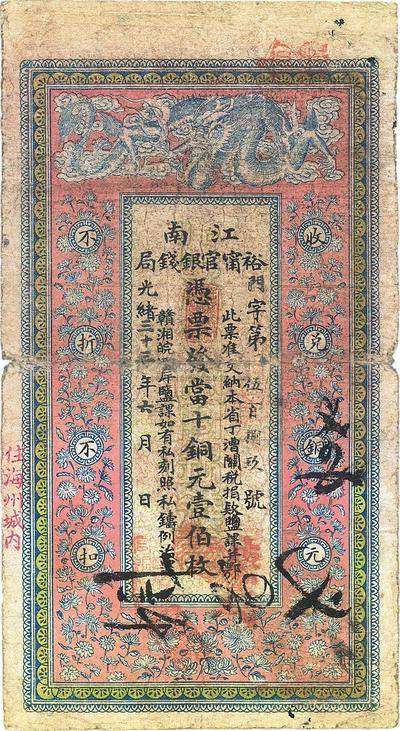 江南
裕甯官銀錢局
字第伍百捌玖號
此票准交納本省丁漕關税捐款鹽課并鄂
憑票發當十銅元壹伯枚
贛湘皖岸鹽課如有私刻照私鑄例治
光緒三十三年六月日
收兑銅元
不折不扣
住海州城內